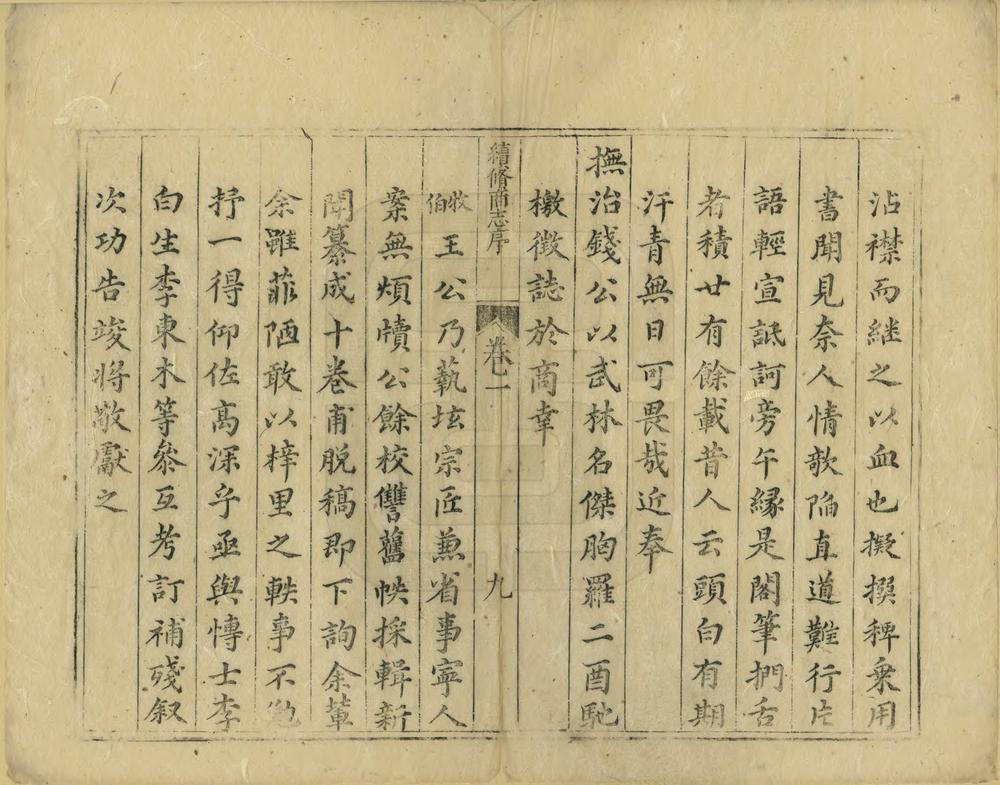 沾襟而繼之以血也擬撰稗乗用
書聞見奈人情欹陥直道難行片
語輕宣詆訶旁午縁是閣筆捫舌
者積廿有餘載昔人云頭白有期
汗青無日可畏哉近奉
撫治錢公以武林名傑胸羅二酉馳
檄徴誌於商幸
續脩商志序 卷一 九
牧伯王公乃藝坛宗匠兼省事寧人
案無煩牘公餘校讐舊帙採輯新
聞纂成十卷甫脱稿即下詢余輩
余雖菲陋敢以梓里之軼事不勉
抒一得仰佐高深乎亟與博士李
白生李東木等叅互考訂補殘叙
次功告竣将敬獻之